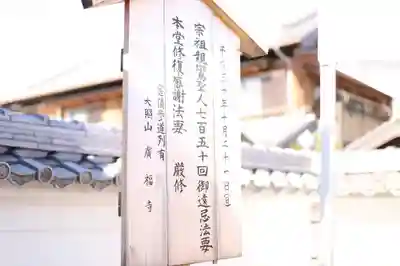 平成三十年十月二十一日㊐
宗祖親鸞聖人七百五十回御遠忌法要
本堂修復感謝法要 厳修
大照山 廣福寺